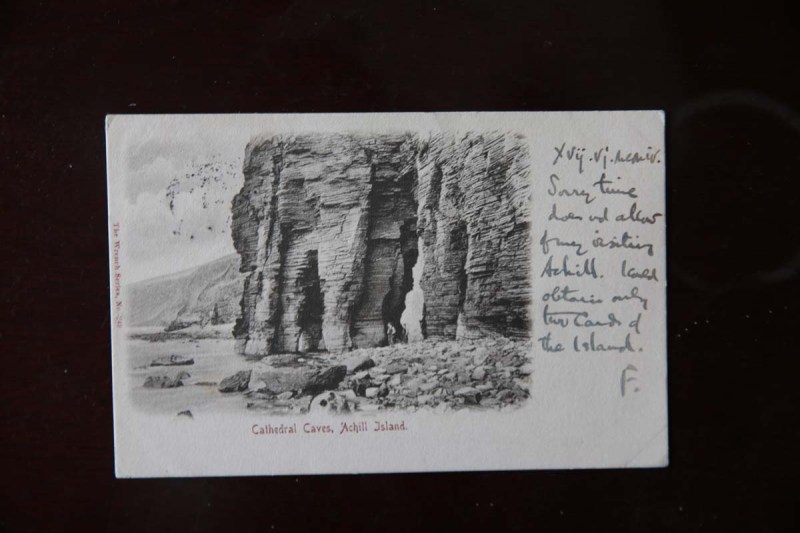 xvij.vj.mcmiv.
Sorry time
does not allow
of my visiting
Achill. Could
obtain only
two Cards of
the Island.
F.
Cathedral Caves, Achill Island.
The Wrench Series, No.